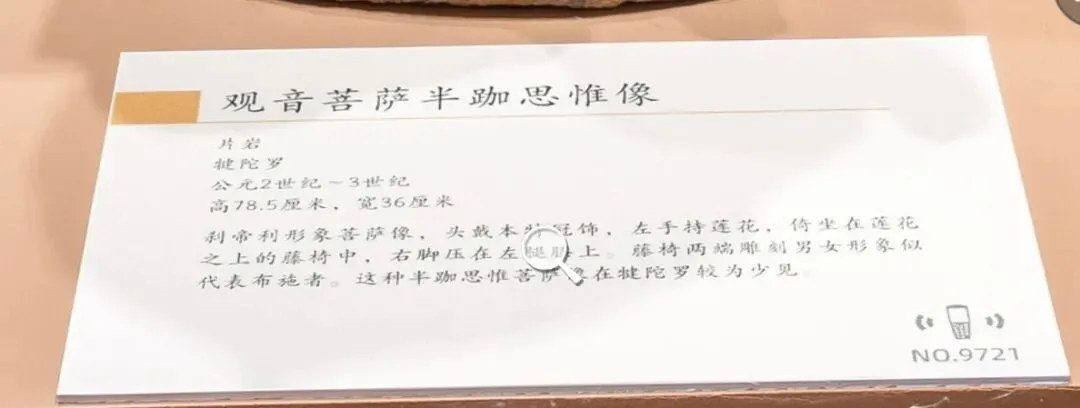 观音菩萨半跏思惟像
片岩
犍陀罗
公元2世纪~3世纪
高78.5厘米，宽36厘米
刹帝利形象菩萨像，头戴本 冠饰，左手持莲花，倚坐在莲花
之上的藤椅中，右脚压在左腿 上。藤椅两端雕刻男女形象似
代表布施者。这种半跏思惟菩萨像在犍陀罗较为少见。
NO.9721